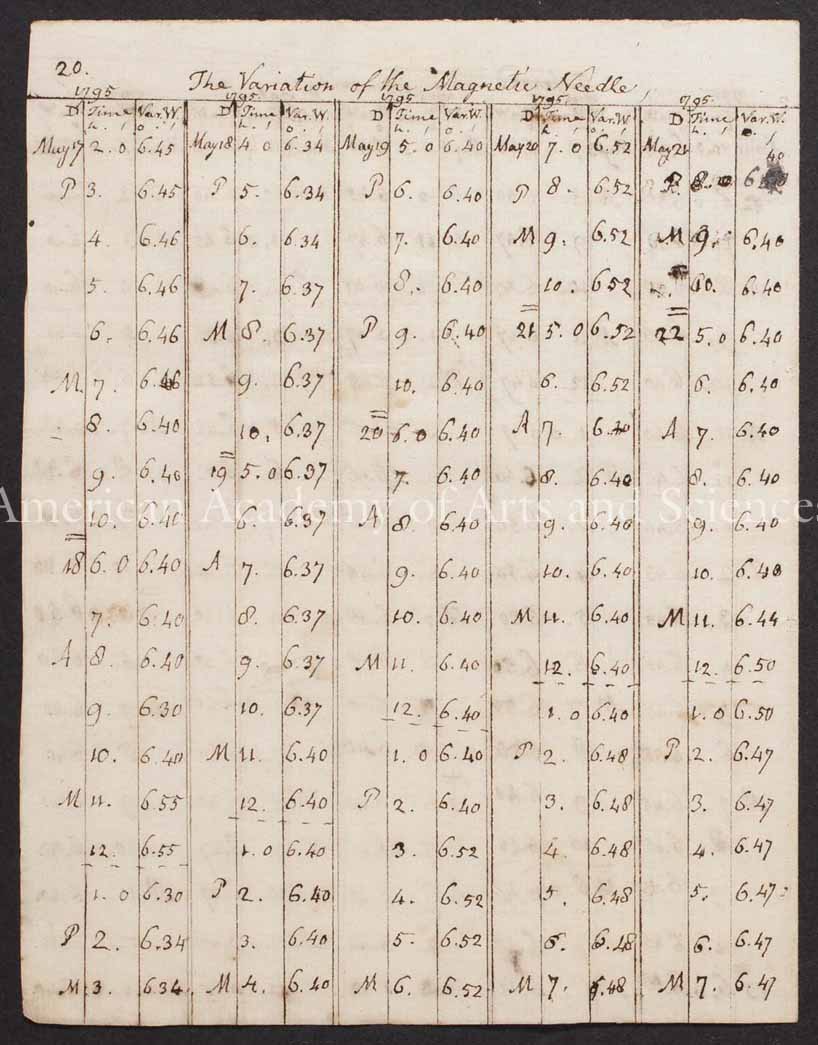 20. The Variation of the Magnetic Needle,
1795 1795 1795 1795 1795
D Time Var.W. D Time Var.W. D Time Var.W. D Time Var.W. D Time Var.W.
h. ' o. ' h. ' o. ' h. ' o. ' h. ' o. ' h. ' o. '
May 17 2. 0 6.45 May 18 4 0 6.34 May 19 5. 0 6.40 May 20 7. 0 6.52 May 21 40
P 3. 6.45 P 5. 6.34 P 6. 6.40 P 8. 6.52 P. 8. 0 6.
4. 6.46 6. 6.34 7. 6.40 M 9. 6.52 M 9. 6.40
5. 6.46 7. 6.37 8. 6.40 10. 6.52 10. 6.40
6. 6.46 M 8. 6.37 P 9. 6.40 21 5. 0 6.52 22 5. 0 6.40
M 7. 6.46 9. 6.37 10. 6.40 6. 6.52 6. 6.40
8. 6.40 10. 6.37 20 6. 0 6.40 A 7. 6.40 A 7. 6.40
9. 6.40 19 5. 0 6.37 7. 6.40 8. 6.40 8. 6.40
American Academy of Arts and Sciences
10. 6.40 6. 6.37 A 8. 6.40 9. 6.40 9. 6.40
18 6. 0 6.40 A 7. 6.37 9. 6.40 10. 6.40 10. 6.40
7. 6.40 8. 6.37 10. 6.40 M 11. 6.40 M 11. 6.44
A 8. 6.40 9. 6.37 M 11. 6.40 12. 6.40 12. 6.50
9. 6.30 10. 6.37 12. 6.40 1. 0 6.40 1. 0 6.50
10. 6.40 M 11. 6.40 1. 0 6.40 P 2. 6.48 P 2. 6.47
M 11. 6.55 12. 6.40 P 2. 6.40 3. 6.48 3. 6.47
12. 6.55 1. 0 6.40 3. 6.52 4. 6.48 4. 6.47
1. 0 6.30 P 2. 6.40 4. 6.52 5. 6.48 5. 6.47
P 2. 6.34 3. 6.40 5. 6.52 6. 6.48 6. 6.47
M 3. 6.34 M 4. 6.40 M 6. 6.52 M 7. 6.48 M 7. 6.47